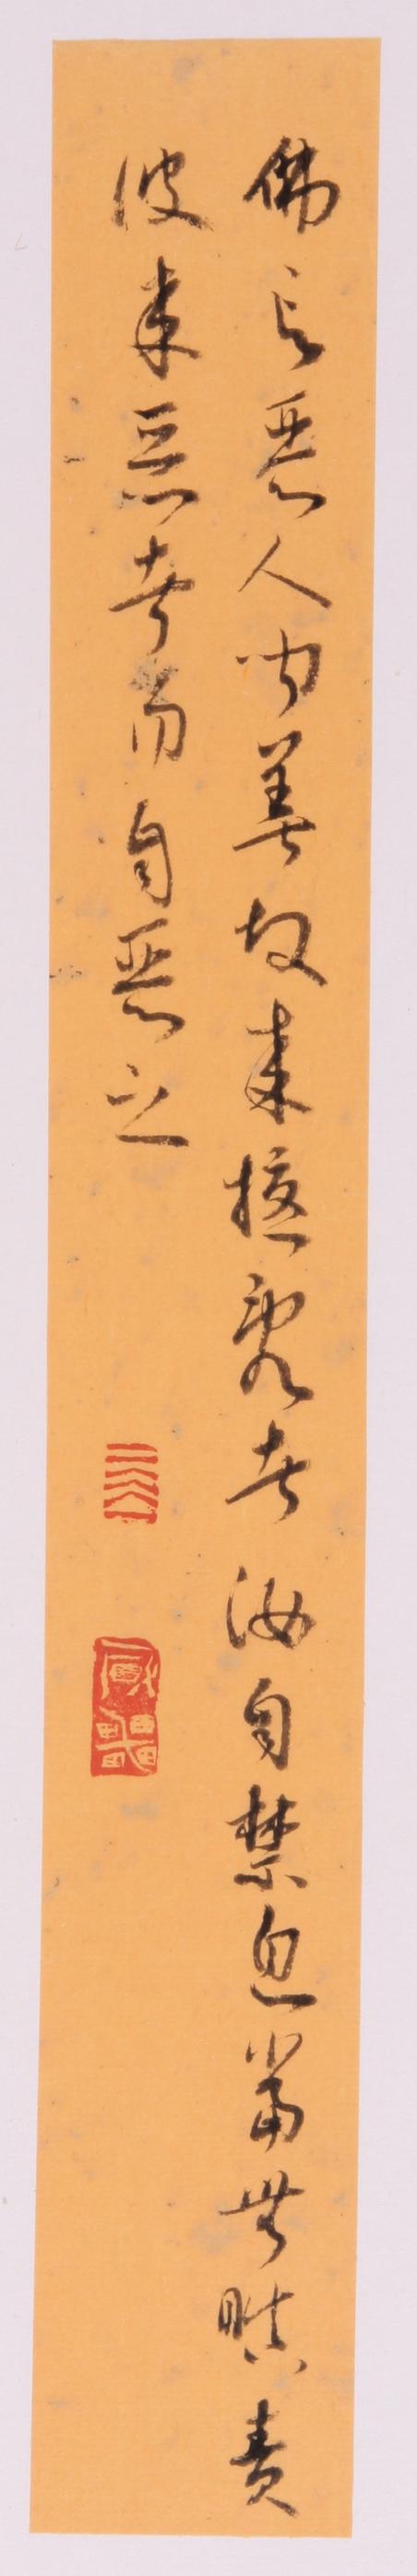 佛言惡人聞善故來擾亂者汝自禁息當無瞋責
彼來惡者而自惡之